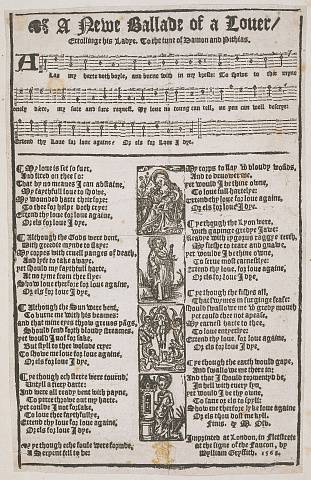 A Newe Ballade of a Louer/
Extollinge his Ladye. To the tune of Damon and Pithias.
ALas my harte doth boyle, and burne with in my breste: To showe to thee myne
onely deere, my sute and sore request, My loue no toung can tell, ne pen can well descrye:
Extend thy loue for loue againe: Or els for loue I dye.
My loue is set so sure,
And fixed on thee so:
That by no meanes I can abstaine,
My faythfull loue to showe,
My wounded harte therefore:
To thee for helpe doth crye:
Extend thy loue for loue againe,
Or els for loue I dye.
Although the Gods were bent,
With greedie mynde to slaye:
My corpes with cruell panges of death,
And lyfe to take awaye.
yet should my faythfull harte,
At no tyme from thee flye:
Show loue therfore for loue againe,
Or els for loue I dye.
Although the Sun were bent,
To burne me with his beames:
and that mine eyes throw greuous pāgs,
Should send forth bloudy streames.
yet would I not forsake,
But styll to thee woulde crye:
To showe me loue for loue againe,
Or els for loue I dye.
ye though ech sterre were tournd,
Untyll a fiery darte:
And were all ready bent with payne,
yet to pearce throw out my harte.
yet coulde I not forsake,
To loue thee faythfullye:
Extend thy loue for loue againe,
Or els for loue I dye.
ye though eche foule were formde,
A Serpent fell to be:
My corps to slay with bloudy woūds,
And to deuower me.
yet would I be thine owne,
To loue full hartelye:
Extend thy loue for loue againe,
Or els for loue I dye.
ye though the Lyon were,
with gapinge greedye Jawe:
Readye with rygorus raggye teeth,
My fleshe to teare and gnawe,
yet woulde I be thine owne,
To serue most earnestlye:
Extend thy loue, for loue againe,
Or els for loue I dye.
ye though the fishes all,
That swymes in surginge seas:
should swallow me wt gredy mouth
yet could thee not apease,
My earnest harte to thee,
To loue entyerlye:
Extend thy loue for loue againe,
Or els for loue I dye.
ye though the earth would gape,
And swallow me there in:
And that I should tormentyd be,
In hell with euery syn,
yet would I be thy owne,
To saue or els to spyll:
Show me therfore thy loue againe
Or els thou dost me kyll.
Finis. M. Osb.
Imprinted at London, in Fletstrete
at the signe of the Faucon, by
Wylliam Gryffith. 1568.